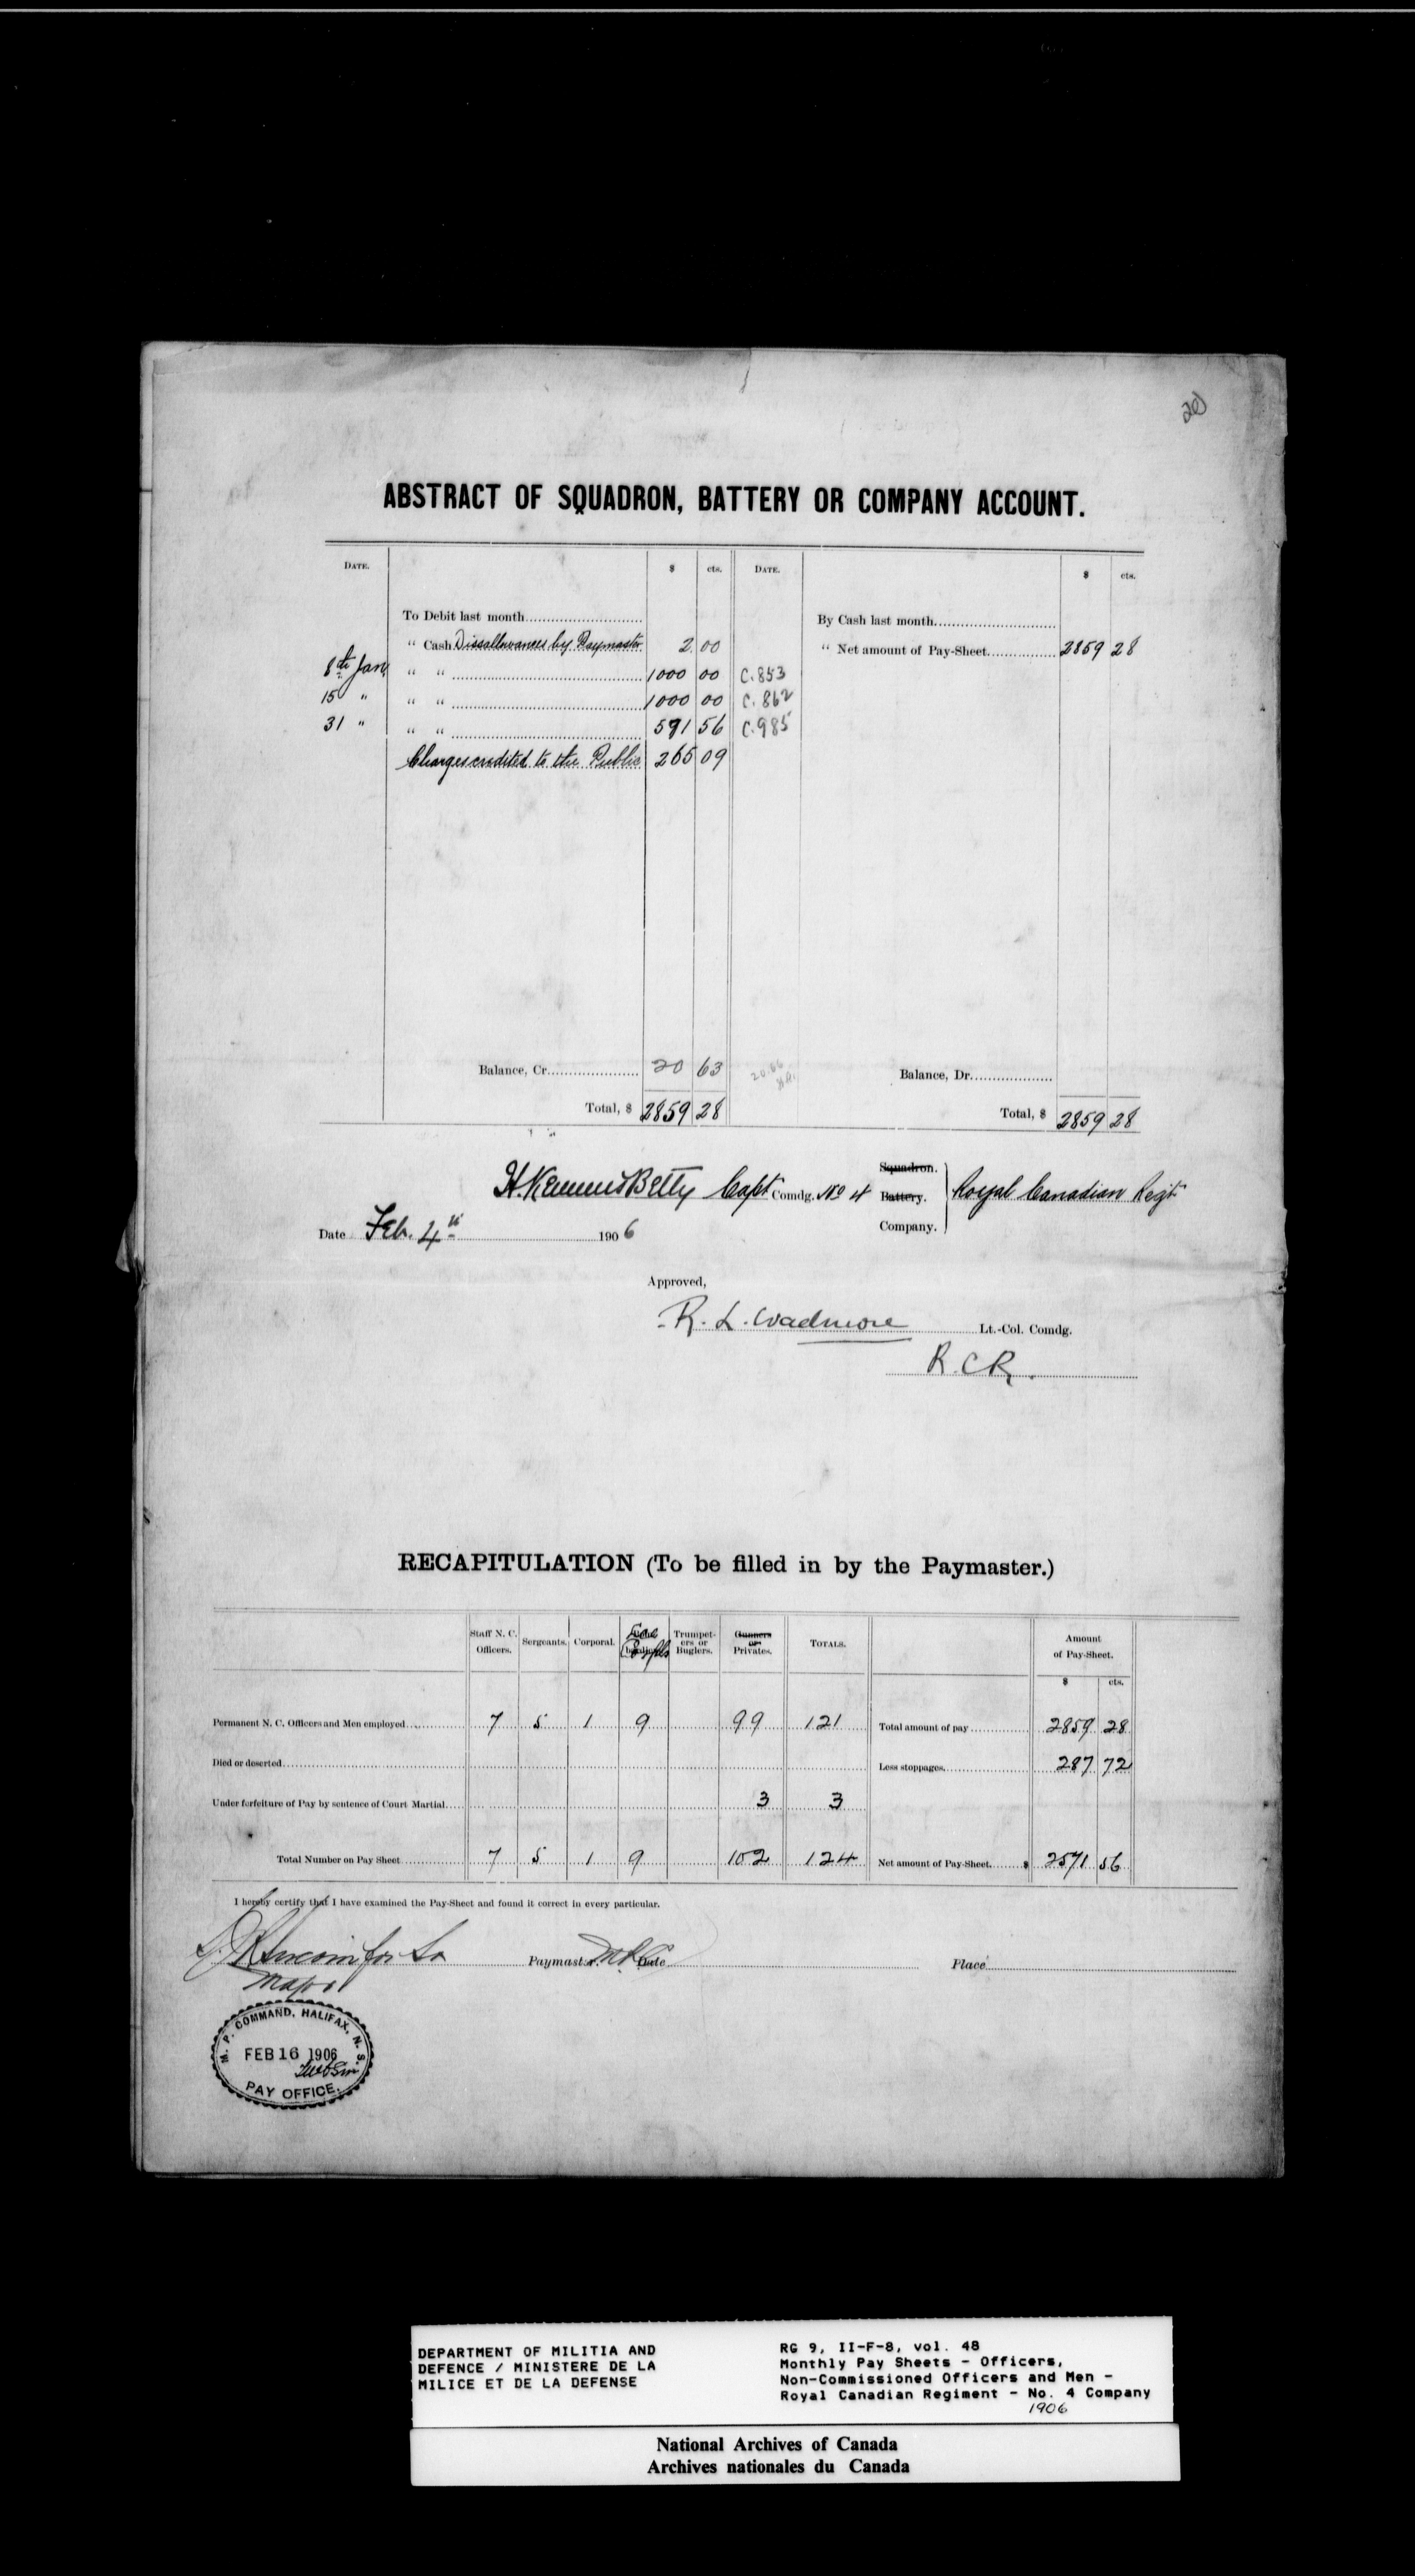 20
ABSTRACT OF SQUADRON, BATTERY OR COMPANY ACCOUNT.
DATE. $ cts. DATE. $ cts.
To Debit last month By Cash last month
" Cash Dissallowances by Paymaster 2 00 " Net amount of Pay-Sheet 2859 28
8th Jan " " 1000 00 C.853
15 " " " 1000 00 C.862
31 " " " 571 56 C.985
Charges credited to the Public 265 09
Balance, Cr. 20 63 20.66 Balance, Dr.
Total, $ 2859 28 Total, $ 2859 28
H. Kemmis Betty Capt Comdg. No 4 Squadron. Battery. Company. Royal Canadian Regt
Date Feb. 4th 1906
Approved,
R. L. Wadmore Lt.-Col. Comdg.
R.C.R.
RECAPITULATION (To be filled in by the Paymaster.)
Staff N. C. Officers. Sergeants. Corporal. Corpls Trumpeters or Buglers. Gunners or Privates. TOTALS. Amount of Pay-Sheet.
$ cts.
Permanent N. C. Officers and Men employed 7 5 1 9 99 121 Total amount of pay 2859 28
Died or deserted Less stoppages 287 72
Under forfeiture of Pay by sentence of Court Martial 3 3
Total Number on Pay Sheet 7 5 1 9 102 124 Net amount of Pay-Sheet $ 2571 56
I hereby certify that I have examined the Pay-Sheet and found it correct in every particular.
Paymaster. Date Place
Major
M. P. COMMAND, HALIFAX, N. S.
FEB 16 1906
PAY OFFICE.
DEPARTMENT OF MILITIA AND
DEFENCE / MINISTERE DE LA
MILICE ET DE LA DEFENSE
RG 9, II-F-8, vol. 48
Monthly Pay Sheets - Officers,
Non-Commissioned Officers and Men -
Royal Canadian Regiment - No. 4 Company
1906
National Archives of Canada
Archives nationales du Canada